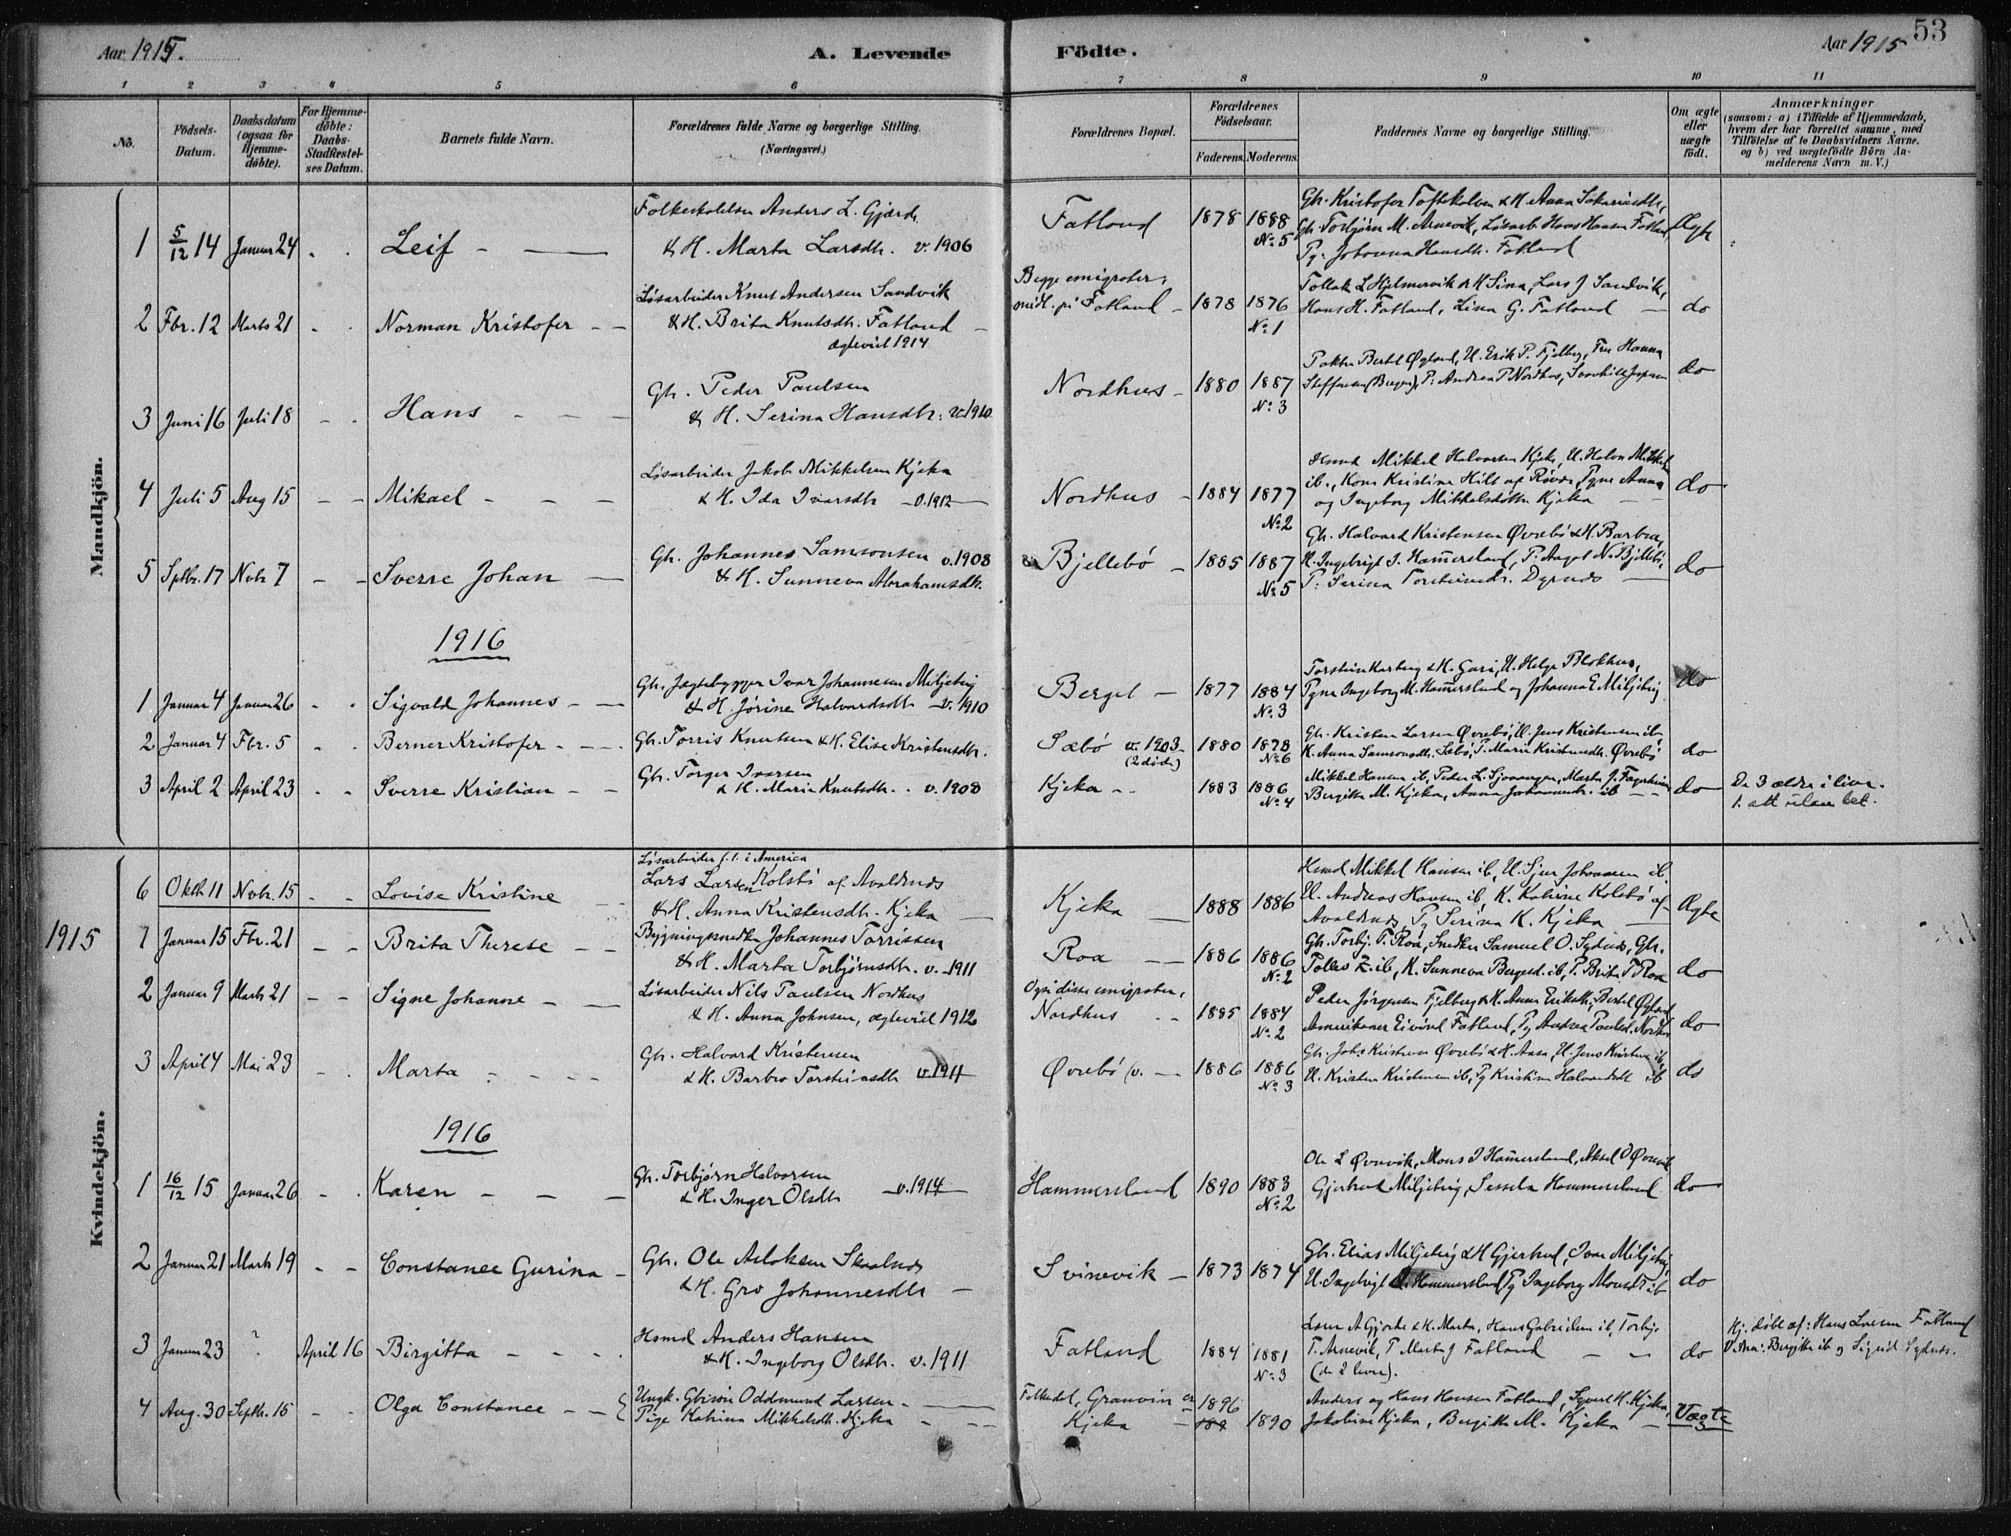 Aar 1915.
A. Levende
Födte.
Aar 1915
53
1 2 3 4 5 6 7 8 9 10 11
No.
Födsels-
Datum.
Daabsdatum
(ogsaa for
Hjemme-
döbte).
For Hjemme-
döbte:
Daabs-
Stadfæstel-
ses Datum.
Barnets fulde Navn.
Forældrenes fulde Navne og borgerlige Stilling.
(Næringsvei.)
Forældrenes Bopæl.
Forældrenes
Födselsaar.
Faderens. Moderens.
Faddernes Navne og borgerlige Stilling.
Om ægte
eller
uægte
födt.
Anmærkninger
(saasom: a) i Tilfælde af Hjemmedaab,
hvem der har forrettet samme, med
Tilföielse af to Daabsvidners Navne.
og b) ved uægtefödte Börn An-
melderens Navn m. V.)
Mandkjön.
Anders L. Gjærde
1 5/12 14 Januar 24 Leif
& H. Marta Larsdtr. v. 1906
Fatland 1878 1888
No. 5
Gbr. Kristofer & H. Anna
Gbr. Torbjörn M. Arnevik, Hans Hansen Fatland
Johanna Hansdtr. Fatland
Ægte
2 Fbr. 12 Marts 21 Norman Kristofer
Løsarbeider Knut Andersen Sandvik
& H. Brita Knutsdtr. Fatland
ægteviet 1914
Begge emigranter,
midl. på Fatland 1878 1876
No. 1
L. Hjelmervik & H. Sina, Lars J. Sandvik,
Hans H. Fatland, Lina G. Fatland
do
3 Juni 16 Juli 18 Hans
Gbr. Peder Paulsen
& H. Serina Hansdtr. v. 1910
Nordhus 1880 1887
No. 3
Bertel Øgland, U. Erik P. Fjelberg, Fru Hanna
Steffensen (Bergen), P. Andrea P. Nordhus,
do
4 Juli 5 Aug 15 Mikael
Løsarbeider Jakob Mikkelsen Kjeka
& H. Ida Ivarsdtr v. 1912
Nordhus 1884 1877
No. 2
Mikkel Halvorsen Kjeka, U. Halvor Mikkelsen
ib., Kone Kristine af Pigerne Anna
og Ingeborg Mikkelsdöttre Kjeka
do
5 Sptbr. 17 Novbr 7 Sverre Johan
Gbr. Johannes Samsonsen v. 1908
& H. Sunneva Abrahamsdtr.
Bjellebö 1885 1887
No. 5
Gbr. Halvard Kristensen Øvrebö & H. Barbra,
U. Ingebrigt J. Hammersland, P. Aagot N. Bjellebö,
P. Serina
do
1916
1 Januar 4 Januar 26 Sigvald Johannes
Gbr. Jægtebygger Ivar Johannesen Miljeteig
& H. Jørine Halvardsdtr v. 1910
Berget 1877 1884
No. 3
Torstein & H. Guri, U. Helge Blokhus,
Pigerne Ingeborg M. Hammersland og Johanna E. Miljeteig
do
2 Januar 4 Fbr. 5 Berner Kristofer
Gbr. Torris Knutsen & H. Elise Kristensdtr.
Sæbö v. 1903
(2 døde) 1880 1878
No. 6
Gbr. Kristen Larsen Øvrebö, U. Jens Kristensen ib
K. Anna Samsonsdtr. Sæbö, P. Marie Kristensdtr. Øvrebö
do
3 April 2 April 23 Sverre Kristian
Gbr. Torger Ivarsen
& H. Marie Knutsdtr. v. 1908
Kjeka 1883 1886
No. 4
Mikkel Hansen ib, Peder L. Marta J.
Birgitta M. Kjeka, Anna Johannesdtr. ib
do
De 3 ældre i live.
Kvindekjön.
6 Oktbr 11 Novbr. 15 Lovise Kristine
Løsarbeider f. t. i America
Lars Larsen Kolstö af Avaldsnes
& H. Anna Kristensdtr. Kjeka
Kjeka 1888 1886
Mikkel Hansen ib, U. Sjur Johannesen ib
U. Andreas Hansen ib, K. Katrine Kolstö af
Avaldsnes, Pg Serina K. Kjeka
Ægte
1915
1 Januar 15 Fbr. 21 Brita Therese
Bygningssnedker Johannes Torrissen
& H. Marta Torbjørnsdtr. v. 1911
Roa 1886 1886
No. 2
Gbr. Torbj. T. Roa, Snedker Samuel O. Sydnes, Gbr.
ib, K. Sunneva ib, P. Brita T. Roa
do
2 Januar 9 Marts 21 Signe Johanne
Løsarbeider Nils Paulsen Nordhus
& H. Anna Johnsen, ægteviet 1912
Også disse emigranter,
Nordhus 1885 1884
No. 2
Peder Jørgensen Fjelberg & H. Anna Eriksdtr, Bertel Øgland
Amerikaner Eivind Fatland, Pg Andrea Paulsd. Nordhus
do
3 April 4 Mai 23 Marta
Gbr. Halvard Kristensen
& H. Barbro Torsteinsdtr v. 1911
Øvrebö 1886 1886
No. 3
Gbr. Johs Kristensen Øvrebö & H. Anna, U. Jens Kristensen ib
U. Kristen Kristensen ib, Pg Kristine Halvardsdt ib
do
1916
1 16/12 15 Januar 26 Karen
Gbr. Torbjørn Halvorsen
& H. Inger Olsdtr v. 1914
Hammersland 1890 1883
No. 2
Ole L. Øvrevik, Mons J. Hammersland, Aksel O. Øvrevik
Gjertrud Miljeteig, Sessela Hammersland
do
2 Januar 21 Marts 19 Constance Gurina
Gbr. Ole Aslaksen Skaalnes
& H. Gro Johannesdtr
Svinevik 1873 1874
Gbr. Elias Miljeteig & H. Gjertrud, Ivar Miljeteig,
U. Ingebrigt Hammersland, Pg Ingeborg Monsdt ib
do
3 Januar 23 ? April 16 Birgitta
Hsmd Anders Hansen
& H. Ingeborg Olsdtr. v. 1911
Fatland 1884 1881
No. 3
A. Gjærde & H. Marta, Hans Gabrielsen ib, Torbj.
T. Arnevik, P. Marta J. Fatland
(de 2 lever).
do
Hj. døbt af: Hans Larsen Fatland
Birgitta ib og Sigrid Sydnes.
4 Aug. 30 Septbr. 15 Olga Constance
Ungk. Oddmund Larsen
Pige Katrina Mikkelsdtr. Kjeka
Granvin
Kjeka
1896
1890
Anders og Hans Hansen Fatland, Sjovel H. Kjeka,
Jakobine Kjeka, Birgitta M. Kjeka
Uægte